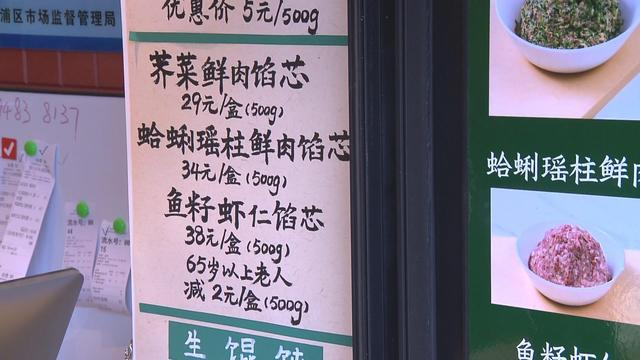 浦区市场监督管理局
9483 8137
优惠价 5元/500g
荠菜鲜肉馅芯
29元/盒(500g)
蛤蜊瑶柱鲜肉馅芯
34元/盒(500g)
鱼籽虾仁馅芯
38元/盒(500g)
65岁以上老人
减 2元/盒(500g)
生馄饨
蛤蜊瑶柱鲜肉
鱼籽虾仁